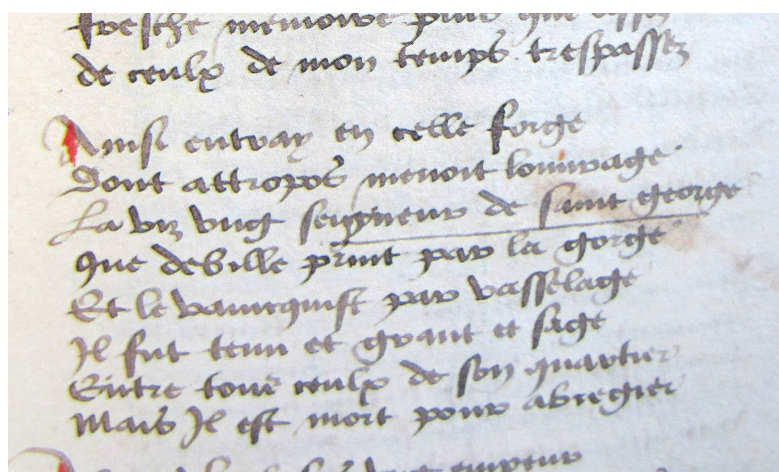 fresche memoire plus que assez
de ceulx de mon temps trespassez
Ainsi entray en celle forge
Dont attropos menoit louvrage
La viz vng seigneur de saint george
Que deville print par la gorge
Et le vaincquist par vasselage
Il fut tenu et grant et sage
Entre tous ceulx de son quartier
Mais Il est mort pour abregier